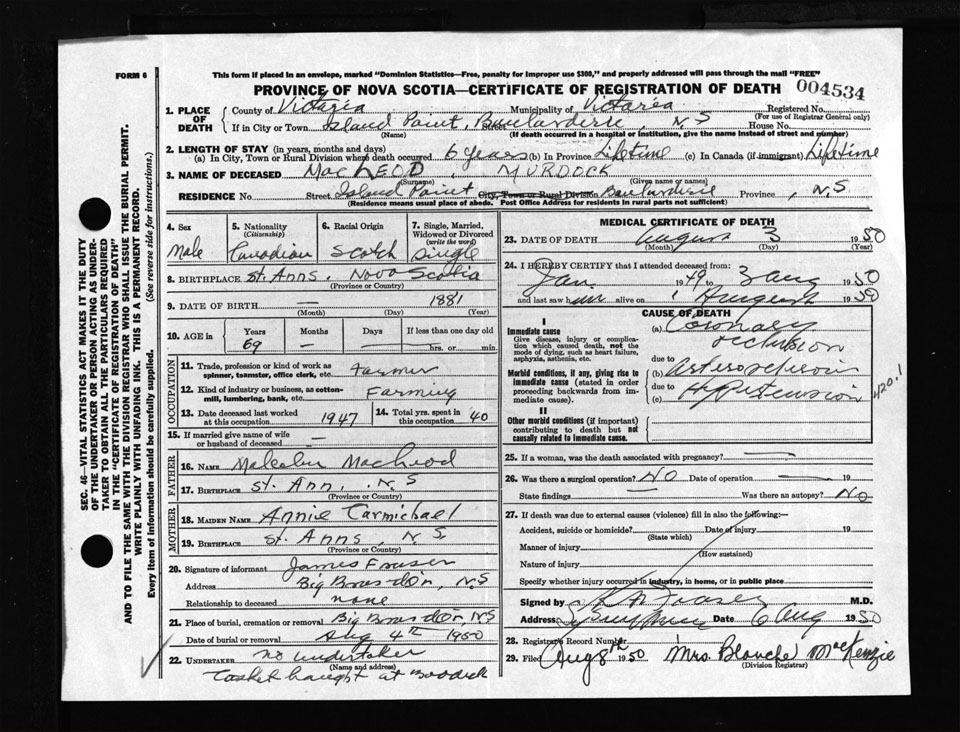 FORM 6
This form if placed in an envelope, marked "Dominion Statistics—Free, penalty for improper use $300," and properly addressed will pass through the mail "FREE"
PROVINCE OF NOVA SCOTIA—CERTIFICATE OF REGISTRATION OF DEATH
004534
1. PLACE OF DEATH
County of Victoria Municipality of Victoria Registered No.
(For use of Registrar General only)
If in City or Town Island Point, Boularderie, N.S. Street House No.
(Name) (If death occurred in a hospital or institution, give the name instead of street and number)
2. LENGTH OF STAY (in years, months and days)
(a) In City, Town or Rural Division where death occurred 6 years (b) In Province Lifetime (c) In Canada (if immigrant) Lifetime
3. NAME OF DECEASED MacLEOD, MURDOCK
(Surname) (Given name or names)
RESIDENCE No. Street Island Point City, Town or Rural Division Boularderie Province , N.S.
(Residence means usual place of abode. Post Office Address for residents in rural parts not sufficient)
4. Sex
Male
5. Nationality
(Citizenship)
Canadian
6. Racial Origin
Scotch
7. Single, Married, Widowed or Divorced
(write the word)
Single
8. BIRTHPLACE St. Anns, Nova Scotia
(Province or Country)
9. DATE OF BIRTH — 1881
(Month) (Day) (Year)
10. AGE in
Years Months Days If less than one day old
69 — — hrs. or min.
OCCUPATION
11. Trade, profession or kind of work as spinner, teamster, office clerk, etc. Farmer
12. Kind of industry or business, as cotton-mill, lumbering, bank, etc. Farming
13. Date deceased last worked at this occupation 1947
14. Total yrs. spent in this occupation 40
15. If married give name of wife or husband of deceased —
FATHER
16. NAME Malcolm MacLeod
17. BIRTHPLACE St. Ann, N.S
MOTHER
18. MAIDEN NAME Annie Carmichael
19. BIRTHPLACE St. Anns, N.S.
(Province or Country)
20. Signature of informant James Fraser
Address Big Bras d'Or, N.S
Relationship to deceased none
21. Place of burial, cremation or removal Big Bras d'Or, N.S
Date of burial or removal Aug 4th 1950
22. UNDERTAKER no undertaker
(Name and address)
Casket bought at Baddeck
MEDICAL CERTIFICATE OF DEATH
23. DATE OF DEATH August 3 1950
(Month) (Day)
24. I HEREBY CERTIFY that I attended deceased from:
Jan. 1949 3 Aug 1950
and last saw him alive on 1 August 1950
CAUSE OF DEATH
I
Immediate cause
Give disease, injury or complication which caused death, not the mode of dying, such as heart failure, asphyxia, asthenia, etc.
(a) Coronary occlusion
due to
Morbid conditions, if any, giving rise to immediate cause (stated in order proceeding backwards from immediate cause).
(b)
due to
(c) Hypertension
420.1
II
Other morbid conditions (if important) contributing to death but not causally related to immediate cause.
25. If a woman, was the death associated with pregnancy? —
26. Was there a surgical operation? NO Date of operation — 19
State findings — Was there an autopsy? No
27. If death was due to external causes (violence) fill in also the following:—
Accident, suicide or homicide? Date of injury 19
(State which)
Manner of injury
(How sustained)
Nature of injury
Specify whether injury occurred in industry, in home, or in public place
Signed by Fraser M.D.
Address Date 6 Aug 1950
28. Registrar's Record Number
29. Filed Aug 8th 1950 Mrs. Blanche MacKenzie
(Division Registrar)
SEC. 46—VITAL STATISTICS ACT MAKES IT THE DUTY
OF THE UNDERTAKER OR PERSON ACTING AS UNDER-
TAKER TO OBTAIN ALL THE PARTICULARS REQUIRED
IN THE "CERTIFICATE OF REGISTRATION OF DEATH"
AND TO FILE THE SAME WITH THE DIVISION REGISTRAR WHO SHALL ISSUE THE BURIAL PERMIT.
WRITE PLAINLY WITH UNFADING INK. THIS IS A PERMANENT RECORD.
Every item of information should be carefully supplied. (See reverse side for instructions.)